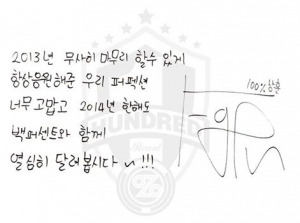 2013년 무사히 마무리 할수 있게
항상응원해준 우리 퍼펙션
너무고맙고 2014년 한해도
백퍼센트와 함께
열심히 달려봅시다~!!!
100% 창훈
HUNDRED